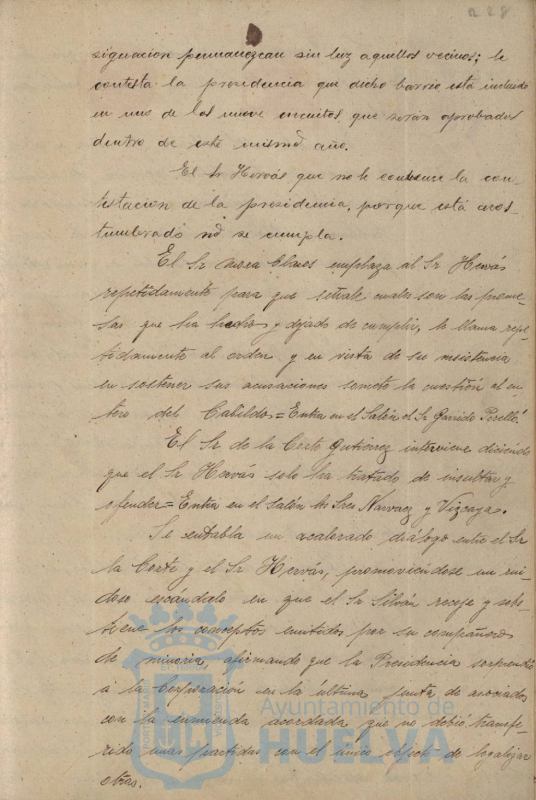 228
signacion permanezcan sin luz aquellos vecinos; le
contesta la presidencia que dicho barrio está incluido
en uno de los nueve circuitos que serán aprobados
dentro de este mismo año.
El Sr Hervás que no le convence la con-
testacion de la presidencia, porque está acos-
tumbrado no se cumpla.
El Sr Mora Claros emplaza al Sr Hervás
repetidamente para que señale cuales son las prome-
sas que ha hecho y dejado de cumplir, le llama repe-
tidamente al orden y en vista de su insistencia
en sostener sus acusaciones somete la cuestión al cri-
terio del Cabildo = Entra en el Salón el Sr Garrido Perelló.
El Sr de la Corte Gutierrez interviene diciendo
que el Sr Hervás solo ha tratado de insultar y
ofender = Entra en el Salón los Sres Narvaez y Vizcaya.
Se entabla un acalorado diálogo entre el Sr
la Corte y el Sr Hervás, promoviéndose un rui-
doso escándalo en que el Sr Silván recoje y sos-
tiene los conceptos emitidos por su compañero
de minoria, afirmando que la Presidencia sorprendió
a la Corporación en la última junta de asociados
con la enmienda acordada que no debió transfe-
rido unas partidas con el único objeto de legalizar
otras.
Ayuntamiento de
HUELVA